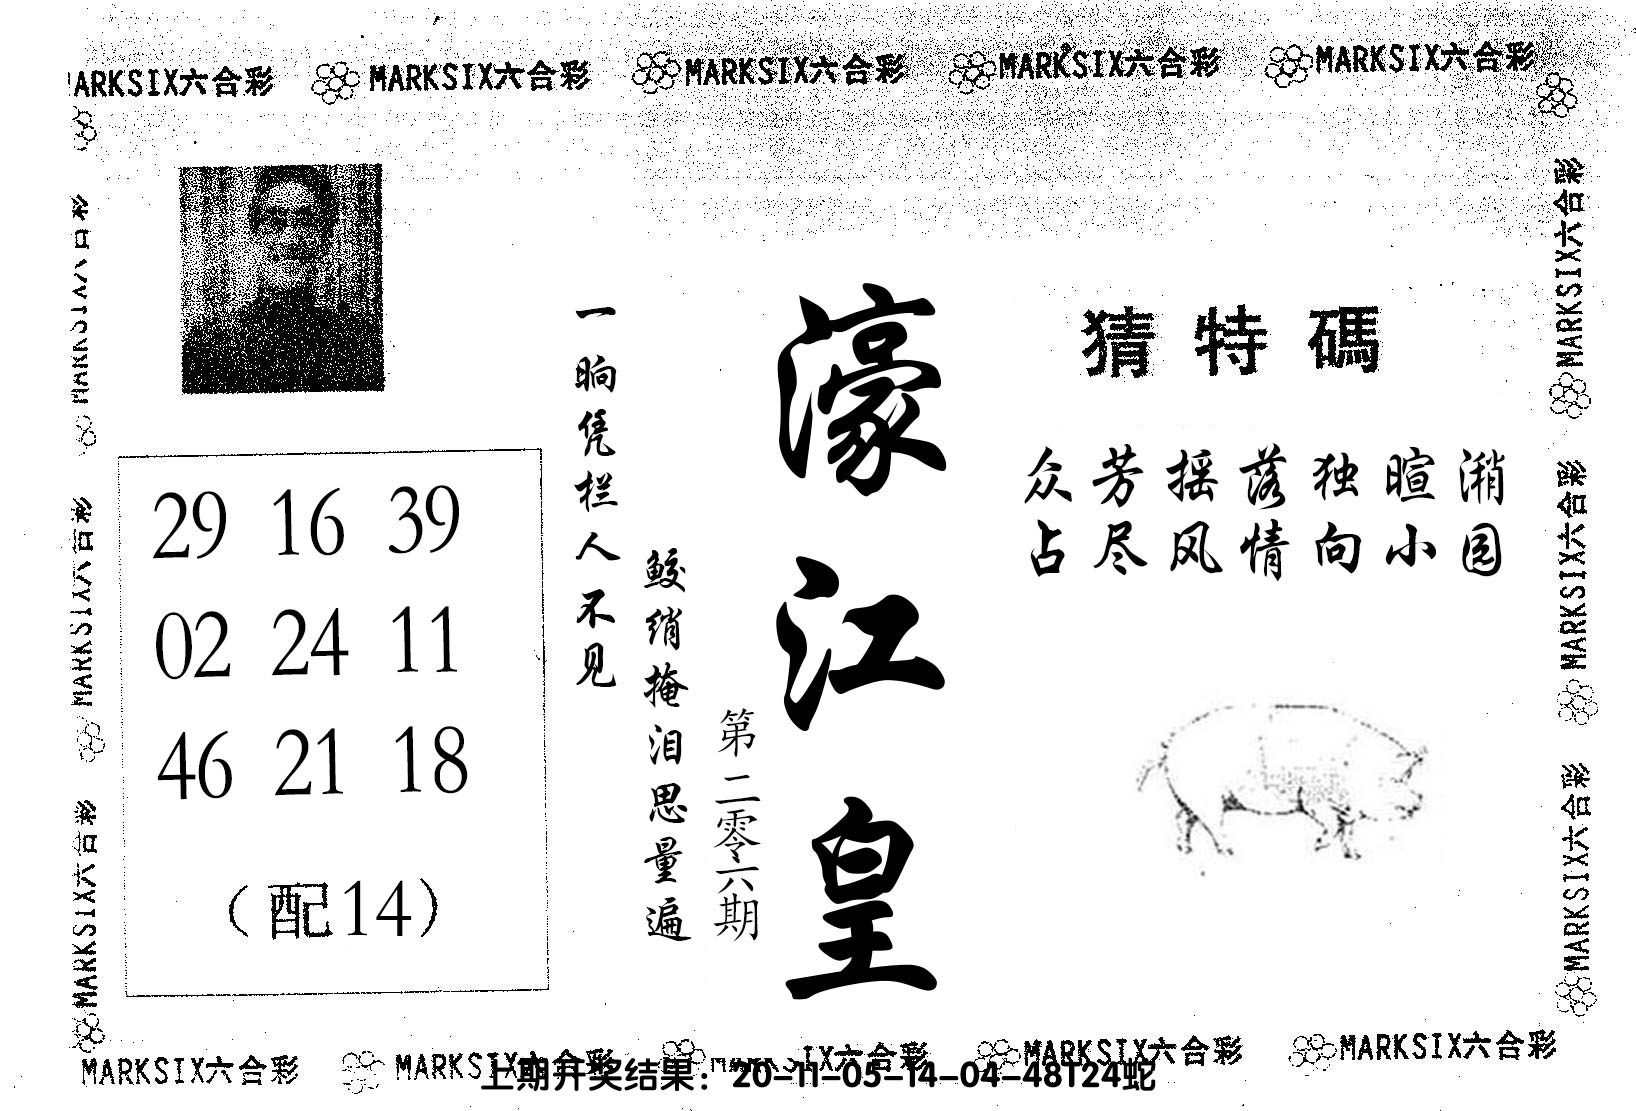 MARKSIX六合彩 MARKSIX六合彩 MARKSIX六合彩 MARKSIX六合彩 MARKSIX六合彩
猜特碼
众芳摇落独暄潲
占尽风情向小园
濠江皇
第二零六期
一晌凭栏人不见
鲛绡掩泪思量遍
29 16 39
02 24 11
46 21 18
（配14）
MARKSIX六合彩
MARKSIX六合彩
MARKSIX六合彩
MARKSIX六合彩
MARKSIX六合彩
MARKSIX六合彩
MARKSIX六合彩 MARKSIX六合彩 MARKSIX六合彩 MARKSIX六合彩 MARKSIX六合彩
上期开奖结果：20-11-05-14-04-48T24蛇